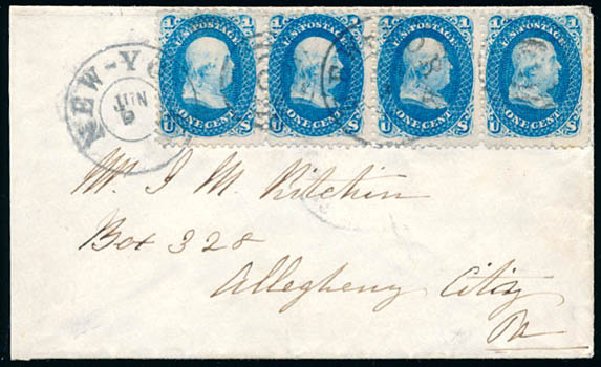 1 U.S. POSTAGE 1 1 U.S. POSTAGE 1 1 U.S. POSTAGE 1 1 U.S. POSTAGE 1
U ONE CENT S U ONE CENT S U ONE CENT S U ONE CENT S
NEW-YO
JUN
9
Mr. J M. Kitchin
Box 328
Allegheny City
Pa